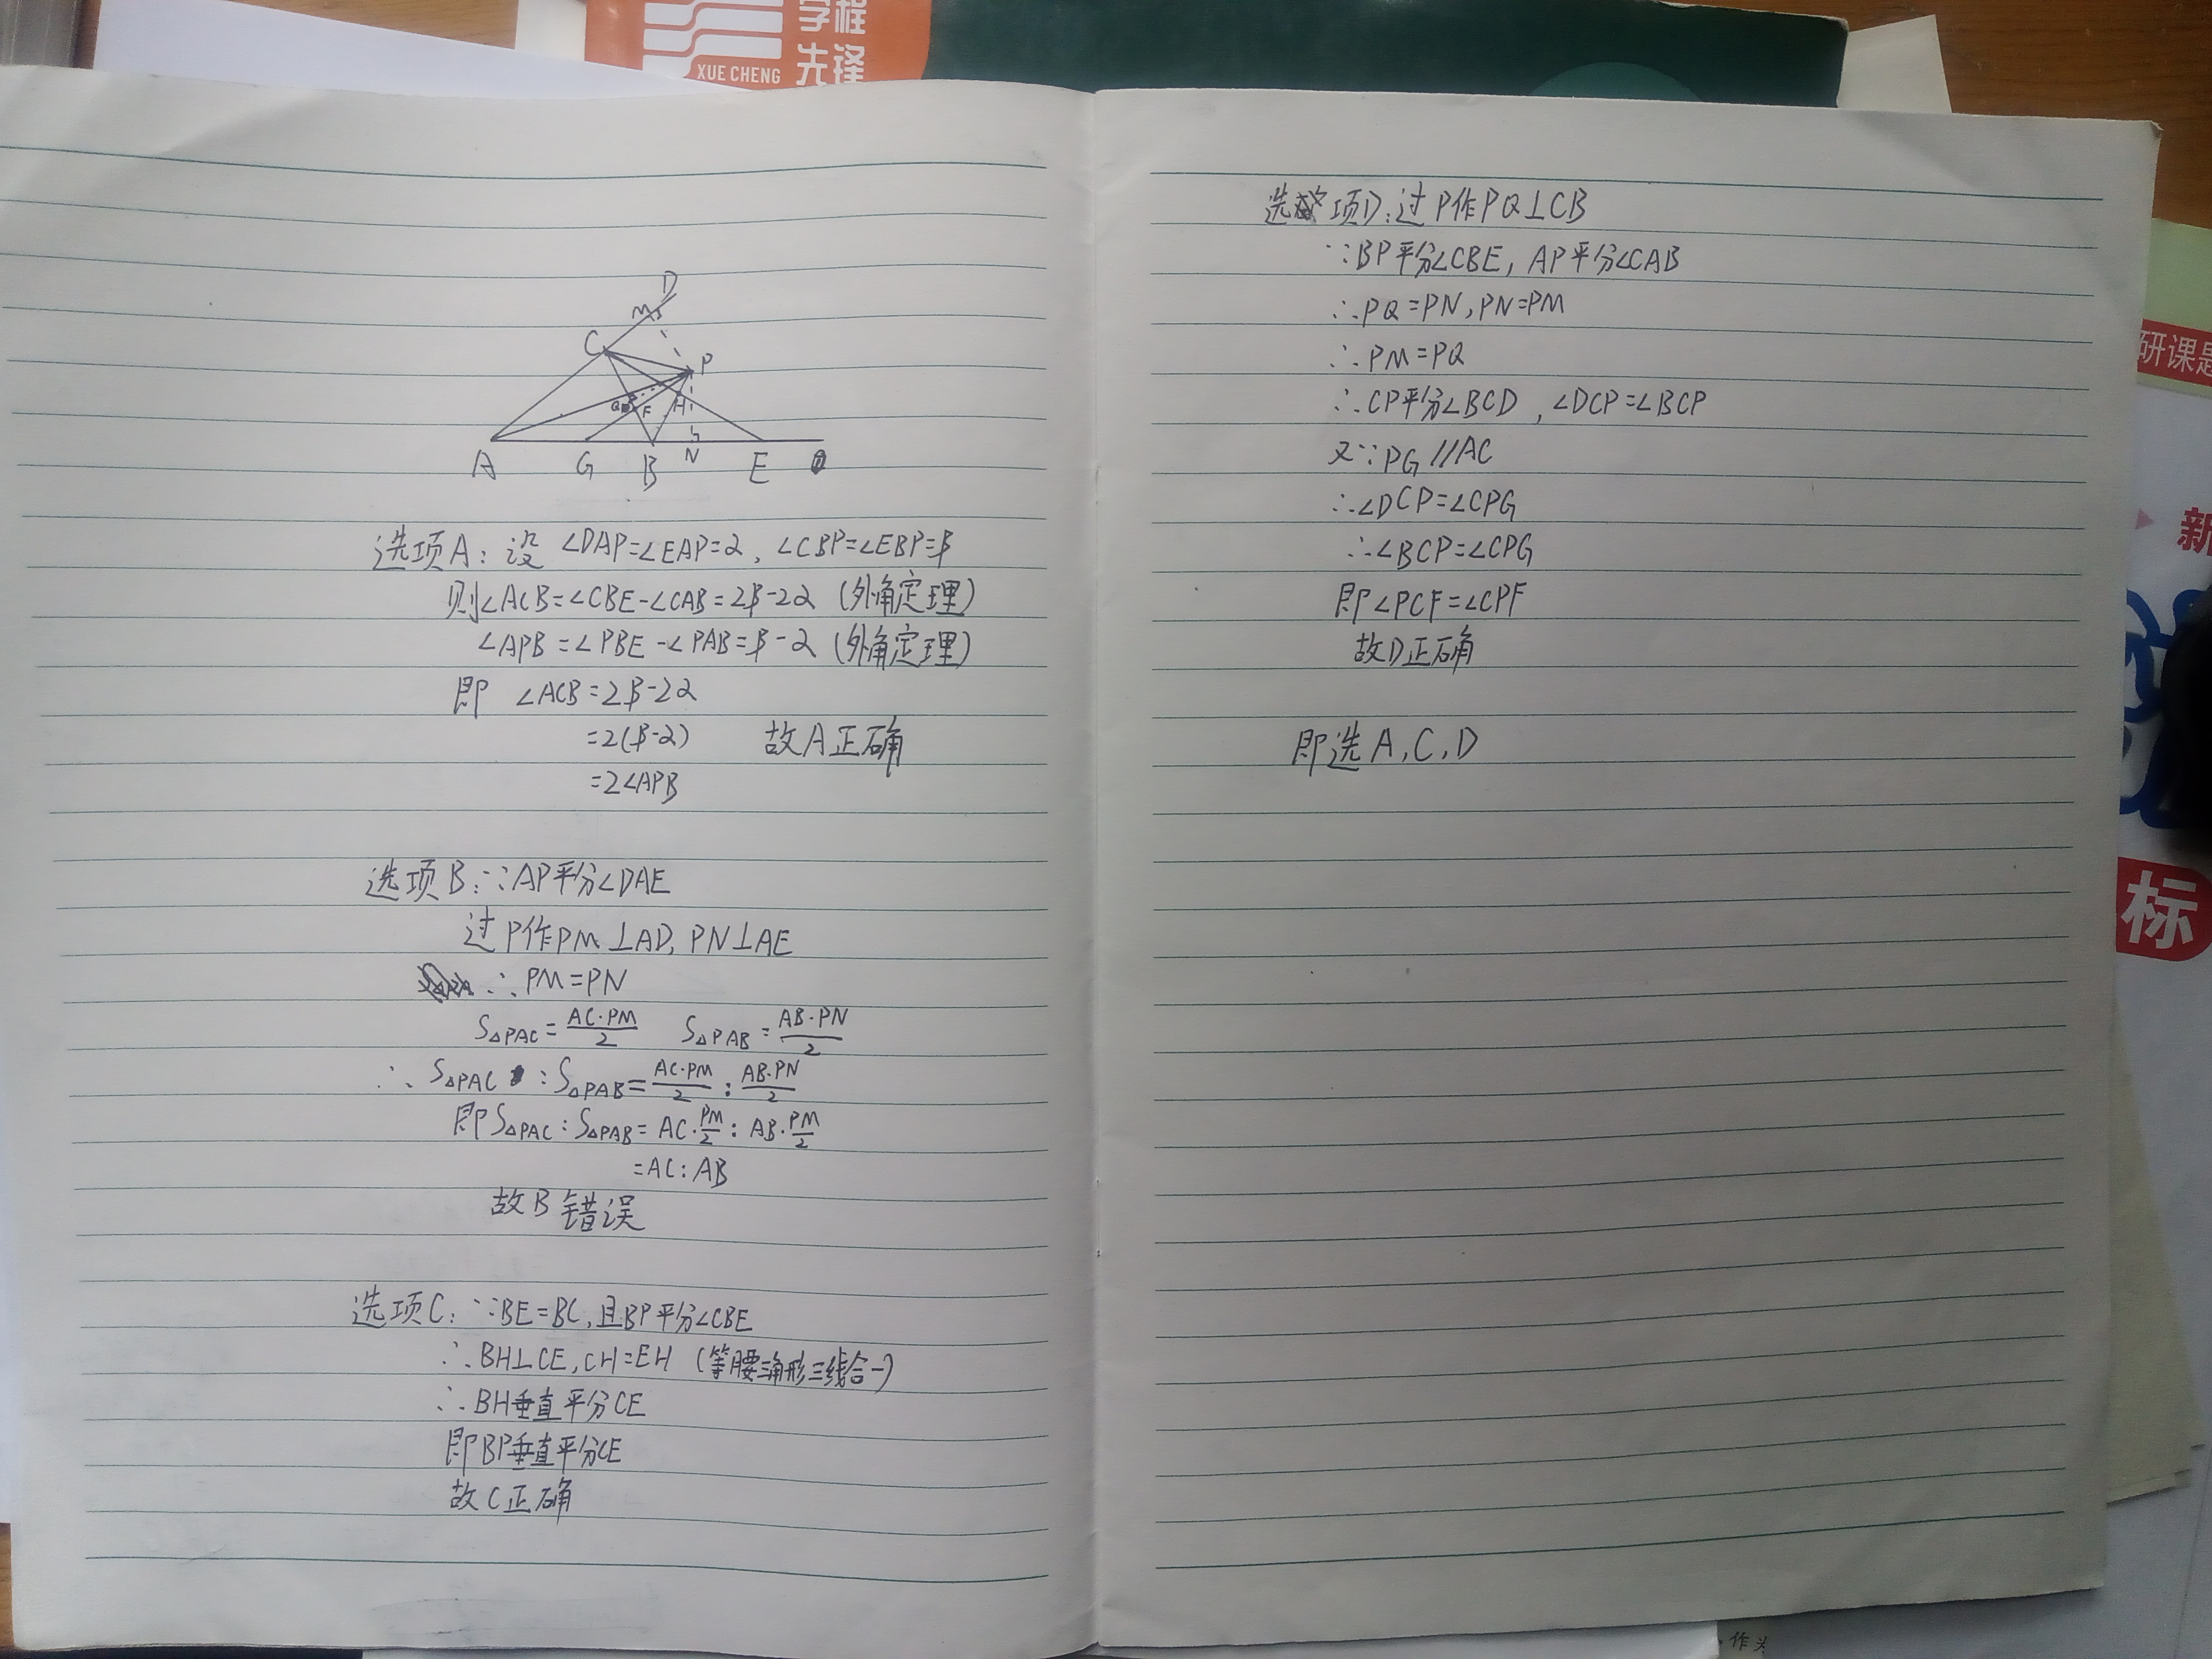 学程
先锋
XUE CHENG
D
M
C
P
Q
F
H
A
G
B
N
E
选项A:设 ∠DAP=∠EAP=α,∠CBP=∠EBP=β
则∠ACB=∠CBE-∠CAB=2β-2α (外角定理)
∠APB=∠PBE-∠PAB=β-α (外角定理)
即 ∠ACB=2β-2α
=2(β-α) 故A正确
=2∠APB
选项B:∵AP平分∠DAE
过P作PM⊥AD,PN⊥AE
∴PM=PN
S△PAC=AC·PM/2 S△PAB=AB·PN/2
∴S△PAC:S△PAB=AC·PM/2:AB·PN/2
即S△PAC:S△PAB=AC·PM/2:AB·PM/2
=AC:AB
故B错误
选项C:∵BE=BC,且BP平分∠CBE
∴BH⊥CE,CH=EH (等腰三角形三线合一)
∴BH垂直平分CE
即BP垂直平分CE
故C正确
选项D:过P作PQ⊥CB
∵BP平分∠CBE,AP平分∠CAB
∴PQ=PN,PN=PM
∴PM=PQ
∴CP平分∠BCD,∠DCP=∠BCP
又∵PG//AC
∴∠DCP=∠CPG
∴∠BCP=∠CPG
即∠PCF=∠CPF
故D正确
即选A,C,D
研课题
新
标